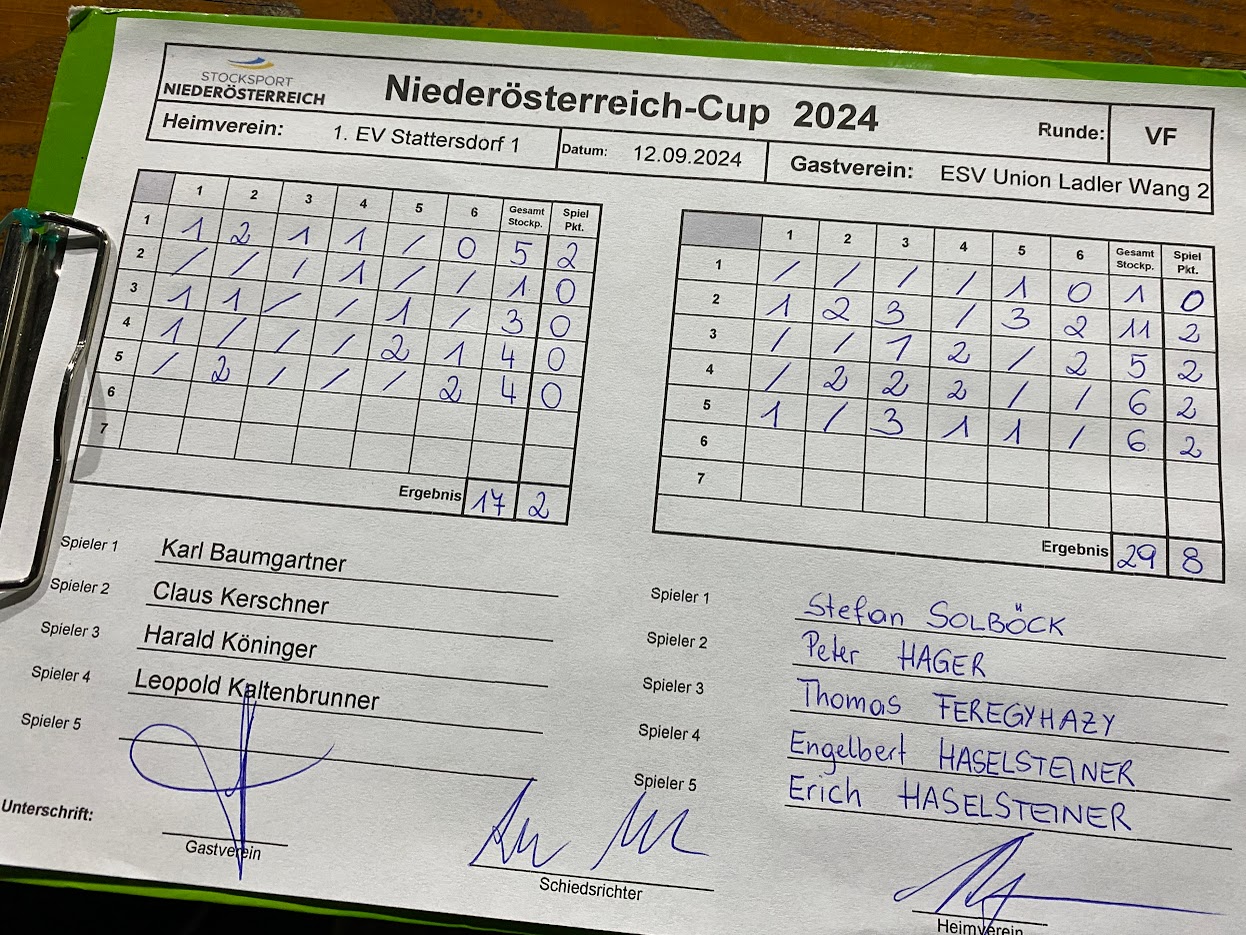 STOCKSPORT
NIEDERÖSTERREICH
Niederösterreich-Cup 2024
Runde: VF
Heimverein: 1. EV Stattersdorf 1 Datum: 12.09.2024 Gastverein: ESV Union Ladler Wang 2
1 2 3 4 5 6 Gesamt Stockp. Spiel Pkt.
1 1 2 1 1 / 0 5 2
2 / / / 1 / / 1 0
3 1 1 / / 1 / 3 0
4 1 / / / 2 1 4 0
5 / 2 / / / 2 4 0
6
7
Ergebnis 17 2
1 2 3 4 5 6 Gesamt Stockp. Spiel Pkt.
1 / / / / 1 0 1 0
2 1 2 3 / 3 2 11 2
3 / / 1 2 / 2 5 2
4 / 2 2 2 / / 6 2
5 1 / 3 1 1 / 6 2
6
7
Ergebnis 29 8
Spieler 1 Karl Baumgartner
Spieler 2 Claus Kerschner
Spieler 3 Harald Köninger
Spieler 4 Leopold Kaltenbrunner
Spieler 5
Spieler 1 Stefan SOLBÖCK
Spieler 2 Peter HAGER
Spieler 3 Thomas FEREGYHAZY
Spieler 4 Engelbert HASELSTEINER
Spieler 5 Erich HASELSTEINER
Unterschrift:
Gastverein
Schiedsrichter
Heimverein